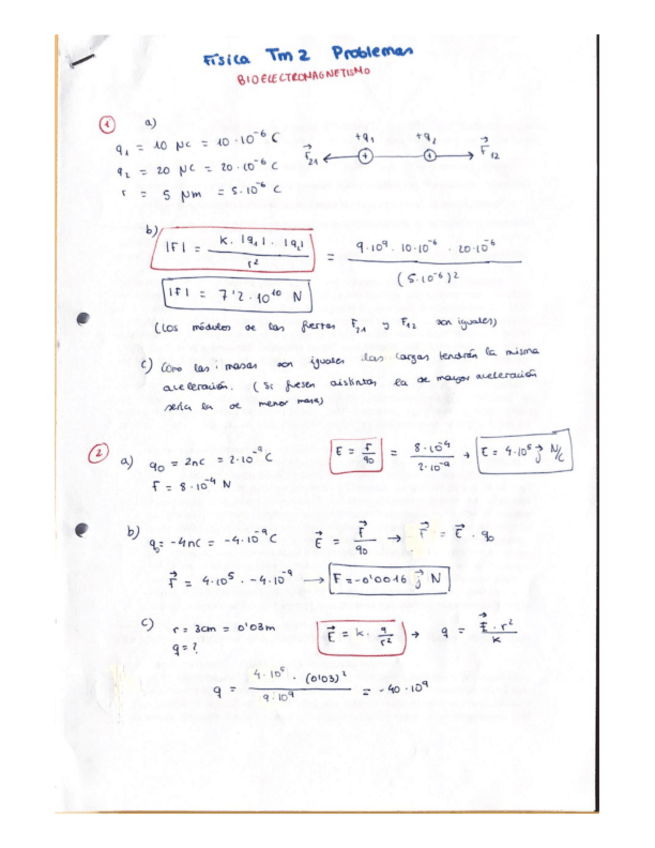 Física Tm 2 Problemas
BIOELECTROMAGNETISMO
1 a)
q₁ = 10 μc = 10·10⁻⁶ C
q₂ = 20 μc = 20·10⁻⁶ C
r = 5 μm = 5·10⁻⁶ C
F₂₁ +q₁ +q₂ F₁₂
b) |F| = K·|q₁|·|q₂| / r² = 9·10⁹·10·10⁻⁶·20·10⁻⁶ / (5·10⁻⁶)²
|F| = 7'2·10¹⁰ N
(Los módulos de las fuerzas F₂₁ y F₁₂ son iguales)
c) Cómo las masas son iguales las cargas tendrán la misma
aceleración. (Si fuesen distintas la de mayor aceleración
sería la de menor masa)
2 a) q₀ = 2nc = 2·10⁻⁹ C
F = 8·10⁻⁴ N
E = F/q₀ = 8·10⁻⁴ / 2·10⁻⁹ → E = 4·10⁵ j⃗ N/C
b) q₀ = -4nc = -4·10⁻⁹ C E⃗ = F⃗/q₀ → F⃗ = E⃗ · q₀
F⃗ = 4·10⁵ · -4·10⁻⁹ → F = -0'0016 j⃗ N
c) r = 3cm = 0'03m
q = ?
E⃗ = K · q/r² → q = E⃗·r² / K
q = 4·10⁵ · (0'03)² / 9·10⁹ = -40·10⁹